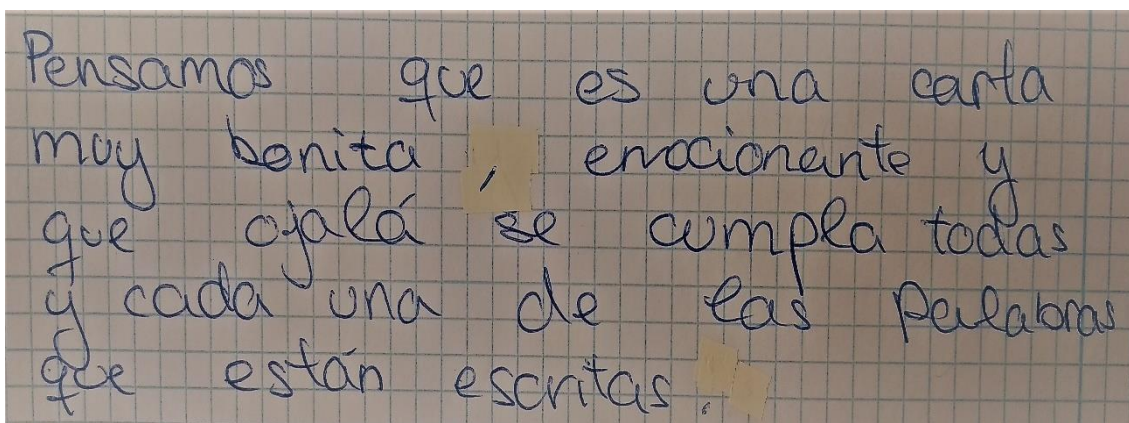 Pensamos que es una carta
muy bonita, emocionante y
que ojalá se cumpla todas
y cada una de las palabras
que están escritas.